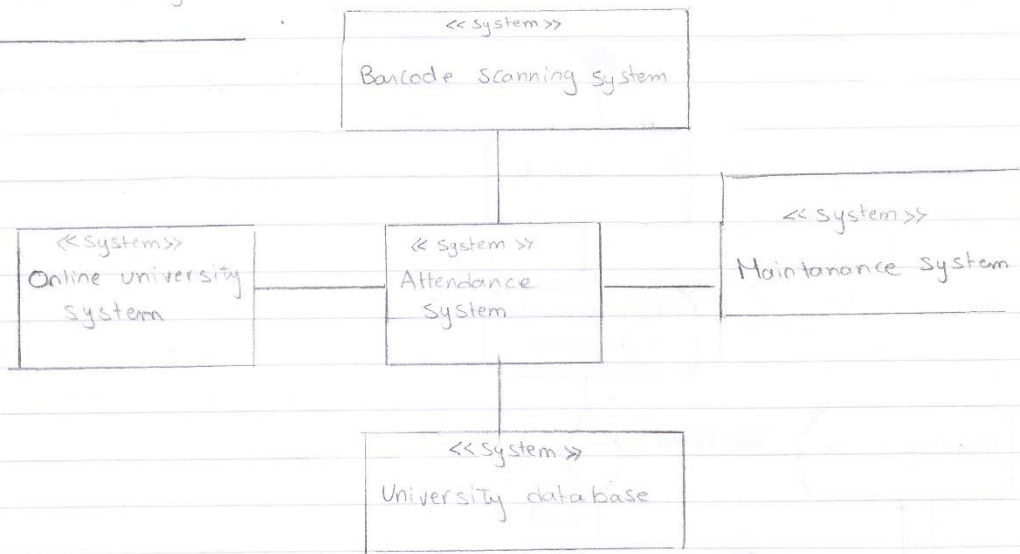 <<system>>
Barcode scanning system
<<system>>
Online university
system
<<system>>
Attendance
system
<<system>>
Maintanance system
<<system>>
University database